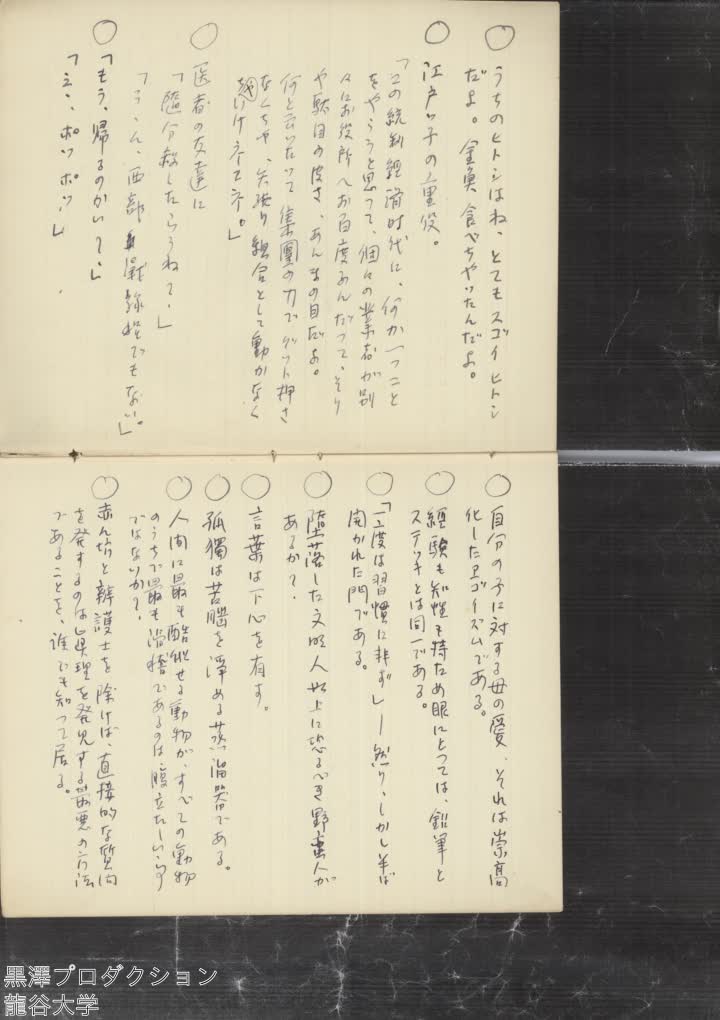 ○ うちのヒトシはね、とてもスゴイヒトシ
だよ。金魚食べちゃったんだよ。
○ 江戸ッ子の重役。
「この統制経済時代に、何か一つこと
をやらうと思って、個々の業者が別
々にお役所へお百度ふんだって、そり
や駄目の皮さ、あんまの目だよ。
何と云いたって集團の力でグット押さ
なくちゃ、矢張り組合として動かなく
ちやいけネエネ。」
○ 医者の友達に
「随分殺したらうねて、」
「うゝん、西部戰線程でもない」。
○ 「もう、帰るのかいて、」
「えゝ、ポツポツ」
○ 自分の子に対する母の愛、それは崇高
化したエゴイズムである。
○ 経験も知性も持ため眼にとつては、鉛筆と
ステッキとは同一である。
○ 「一度は習慣に非ず」― 然り、しかし半ば
開かれた門である。
○ 堕落した文明人以上に恐るべき野蛮人が
あるか?
○ 言葉は下心を有す。
○ 孤獨は苦惱を淨める蒸溜器である。
○ 人間に最も酷似せる動物が、すべての動物
のうちで最も滑稽であるのは腹立たしい
ではないか?
○ 赤ん坊と辨護士を除けば、直接的な質問
を発するのは眞理を発見する最悪の方法
であることを、誰でも知って居る。
黒澤プロダクション
龍谷大学